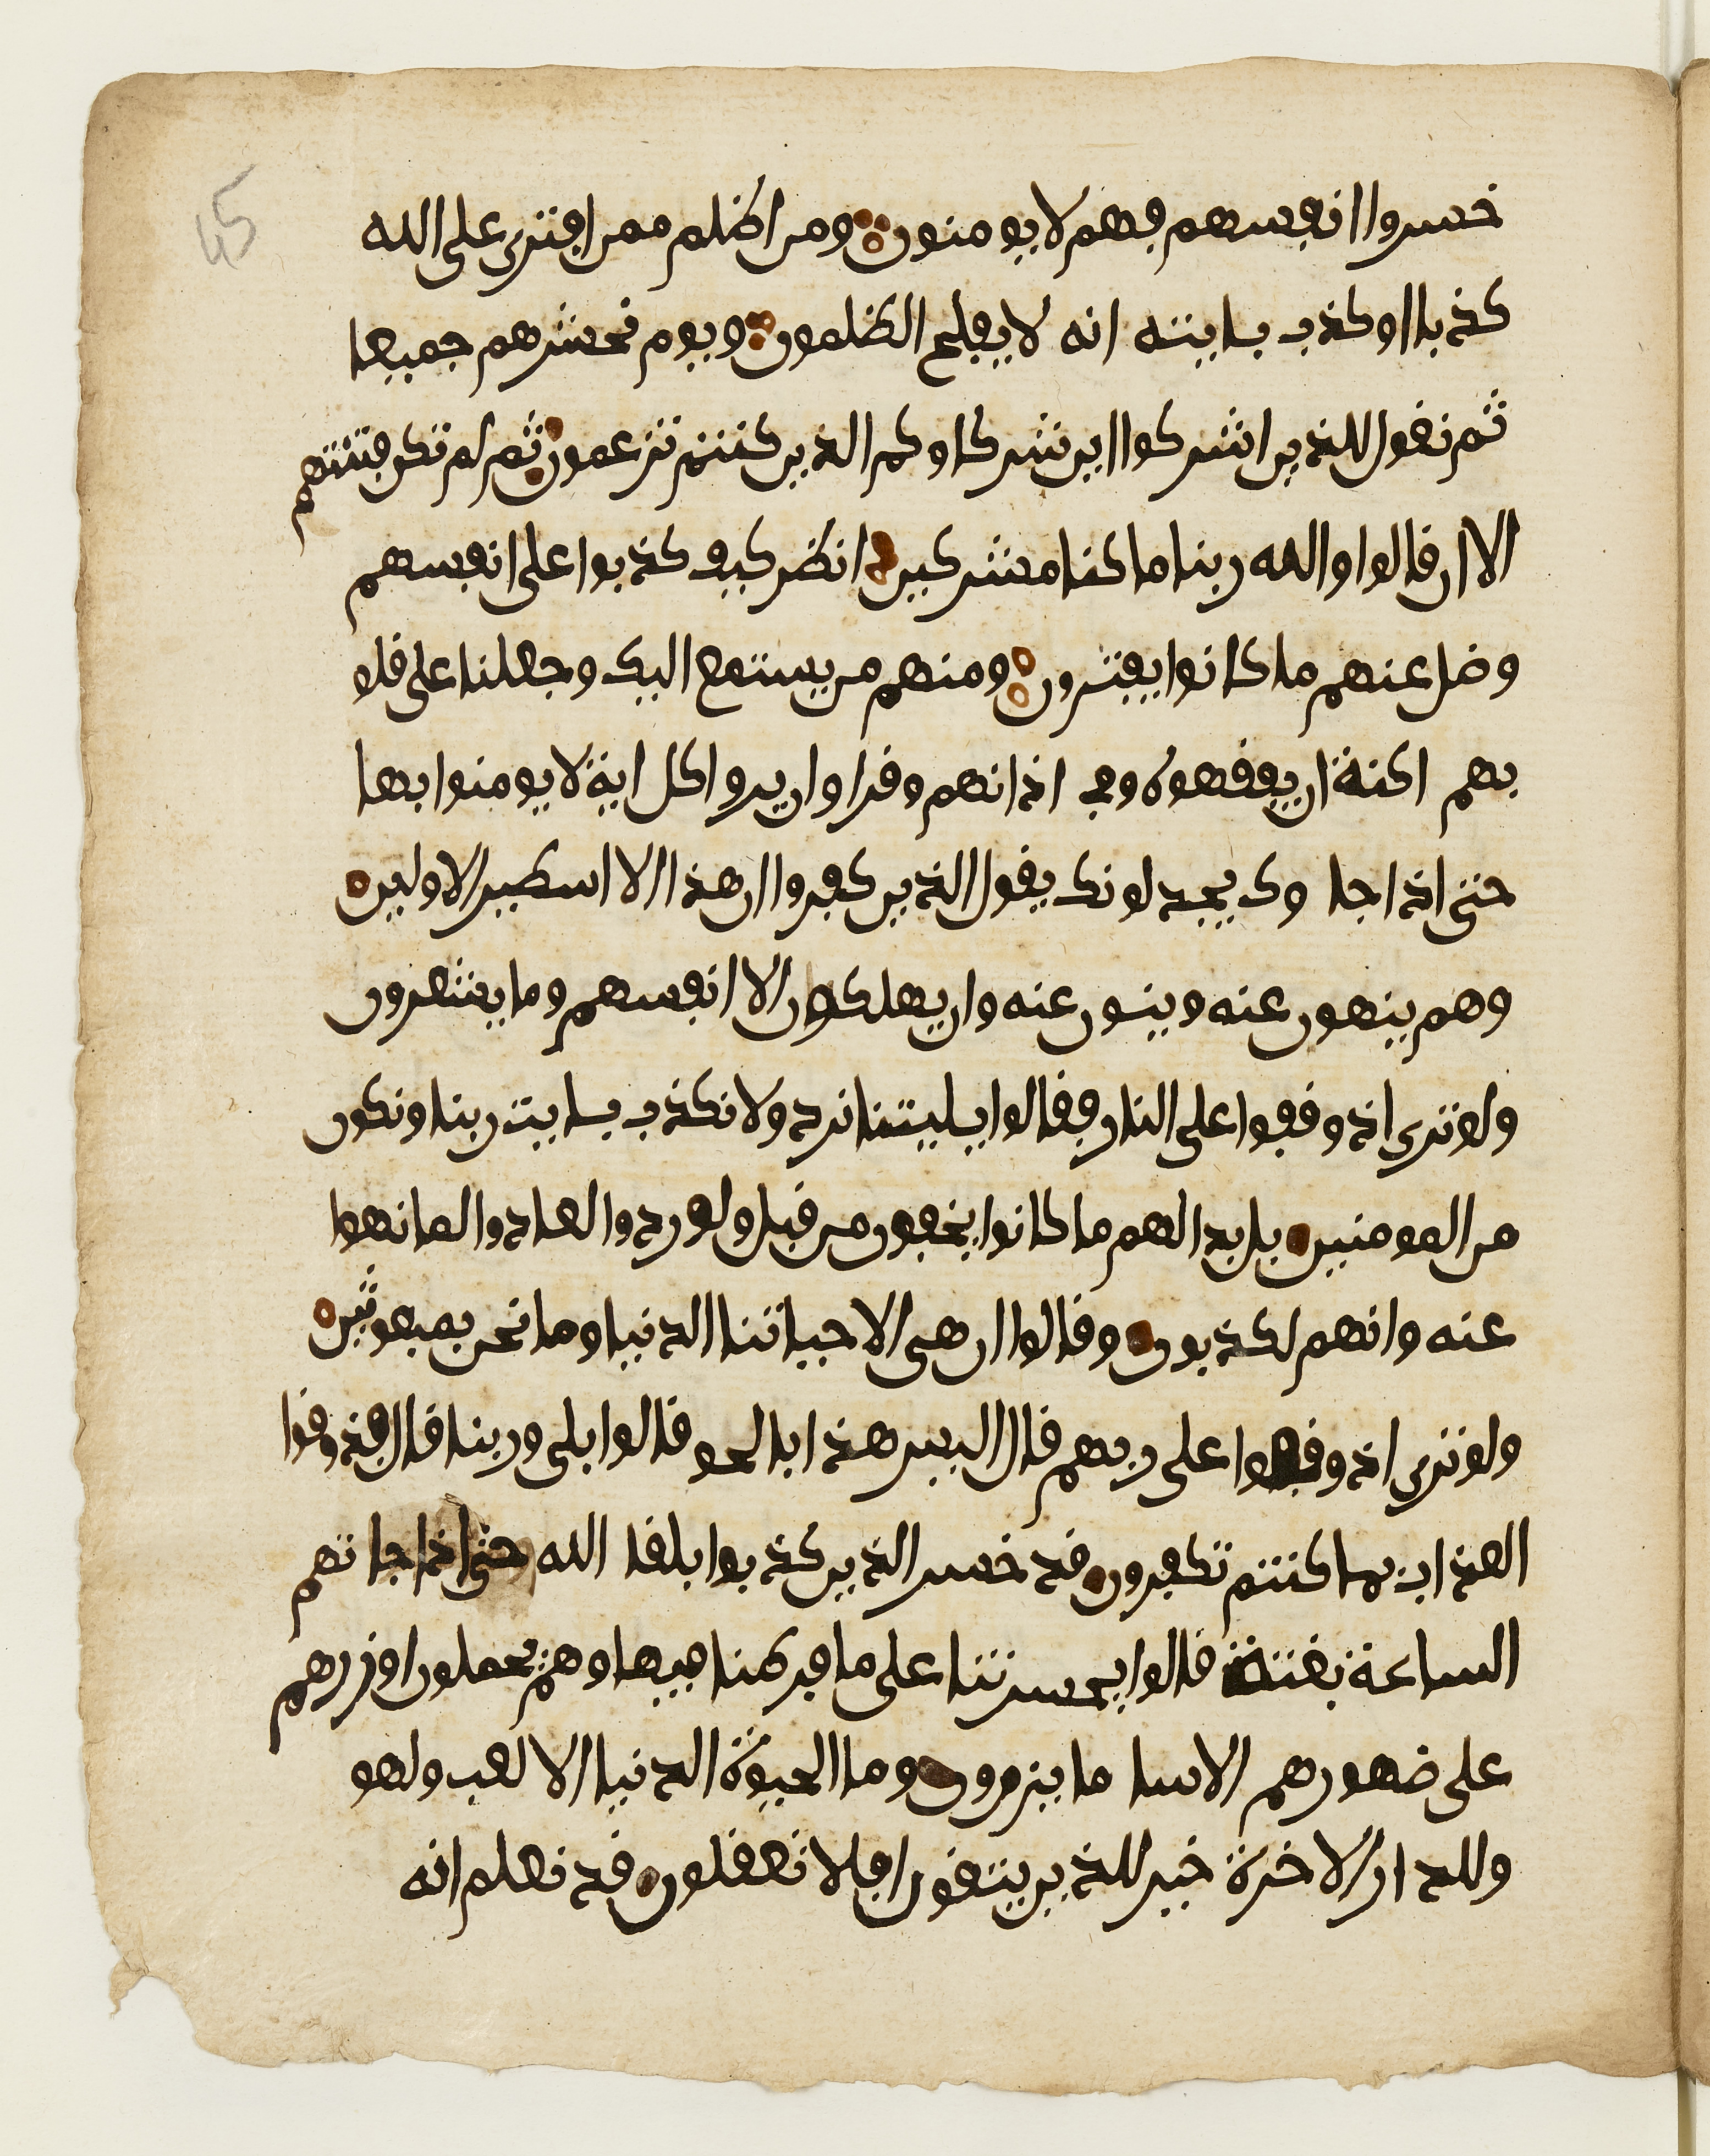 45
خسروا انفسهم فهم لا يومنون ومن اظلم ممن افترى على الله
كذبا او كذب بايته انه لا يفلح الظلمون ويوم نحشرهم جميعا
ثم نقول للذين اشركوا اين شركاوكم الذين كنتم تزعمون ثم لم تكن فتنتهم
الا ان قالوا والله ربنا ما كنا مشركين انظر كيف كذبوا على انفسهم
وضل عنهم ما كانوا يفترون ومنهم من يستمع اليك وجعلنا على قلو
بهم اكنة ان يفقهوه وفي اذانهم وقرا وان يروا كل اية لا يومنوا بها
حتى اذا جا وك يجدلونك يقول الذين كفروا ان هذا الا اسطير الاولين
وهم ينهون عنه وينون عنه وان يهلكون الا انفسهم وما يشعرون
ولو ترى اذ وقفوا على النار فقالوا يليتنا نرد ولا نكذب بايت ربنا ونكون
من المومنين بل بدا لهم ما كانوا يخفون من قبل ولو ردوا لعادوا لما نهوا
عنه وانهم لكذبون وقالوا ان هى الا حياتنا الدنيا وما نحن بمبعوثين
ولو ترى اذ وقفوا على ربهم قال اليس هذا بالحق قالوا بلى وربنا قال فذوقوا
العذاب بما كنتم تكفرون قد خسر الذين كذبوا بلقا الله حتى اذا جا تهم
الساعة بغتة قالوا يحسرتنا على ما فرطنا فيها وهم يحملون اوزرهم
على ضهورهم الا سا ما يزرون وما الحيوة الدنيا الا لعب ولهو
وللدار الاخرة خير للذين يتقون افلا تعقلون قد نعلم انه